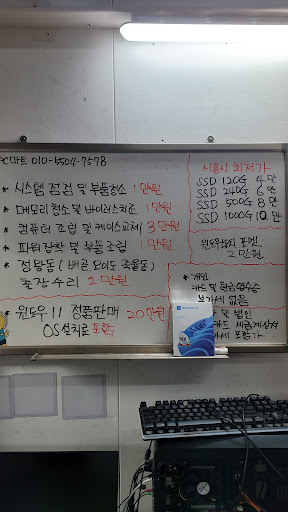 PC마트 010-5504-7578
* 시스템 점검 및 부품청소 1만원
* 메모리 청소 및 바이러스치료 1만원
* 컴퓨터 조립 및 케이스교체 3만원
* 파워장착 및 부품 조립 1만원
* 정왕동 (배곧 오이도 죽율동)
출장수리 2만원
* 윈도우 11 정품판매 20만원
OS설치료 포함
시흥시 최저가
SSD 120G 4만
SSD 240G 6만
SSD 500G 8만
SSD 1000G 12만
윈도우설치 포맷
2만원
* 개인
카드 및 현금영수증
부가세 없음
및 법인
카드 세금계산서
부가세 포함가